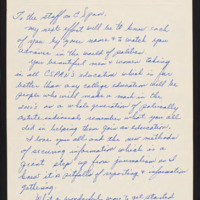 To the staff on C Span.
My next effort will be to know each
of you by your name & to watch your
advance in the world of politics.
You beautiful men & women taking
in all C.SPAN's education which is far
better than any college education will be
people who will make a mark in the
as a whole generation of politically
remember what you all
did in helping them an education.
I love you all and the new methods
of securing information which is a
giant step up from journalism as I
know it in of reporting & information
gathering.
What a wonderful way to get started